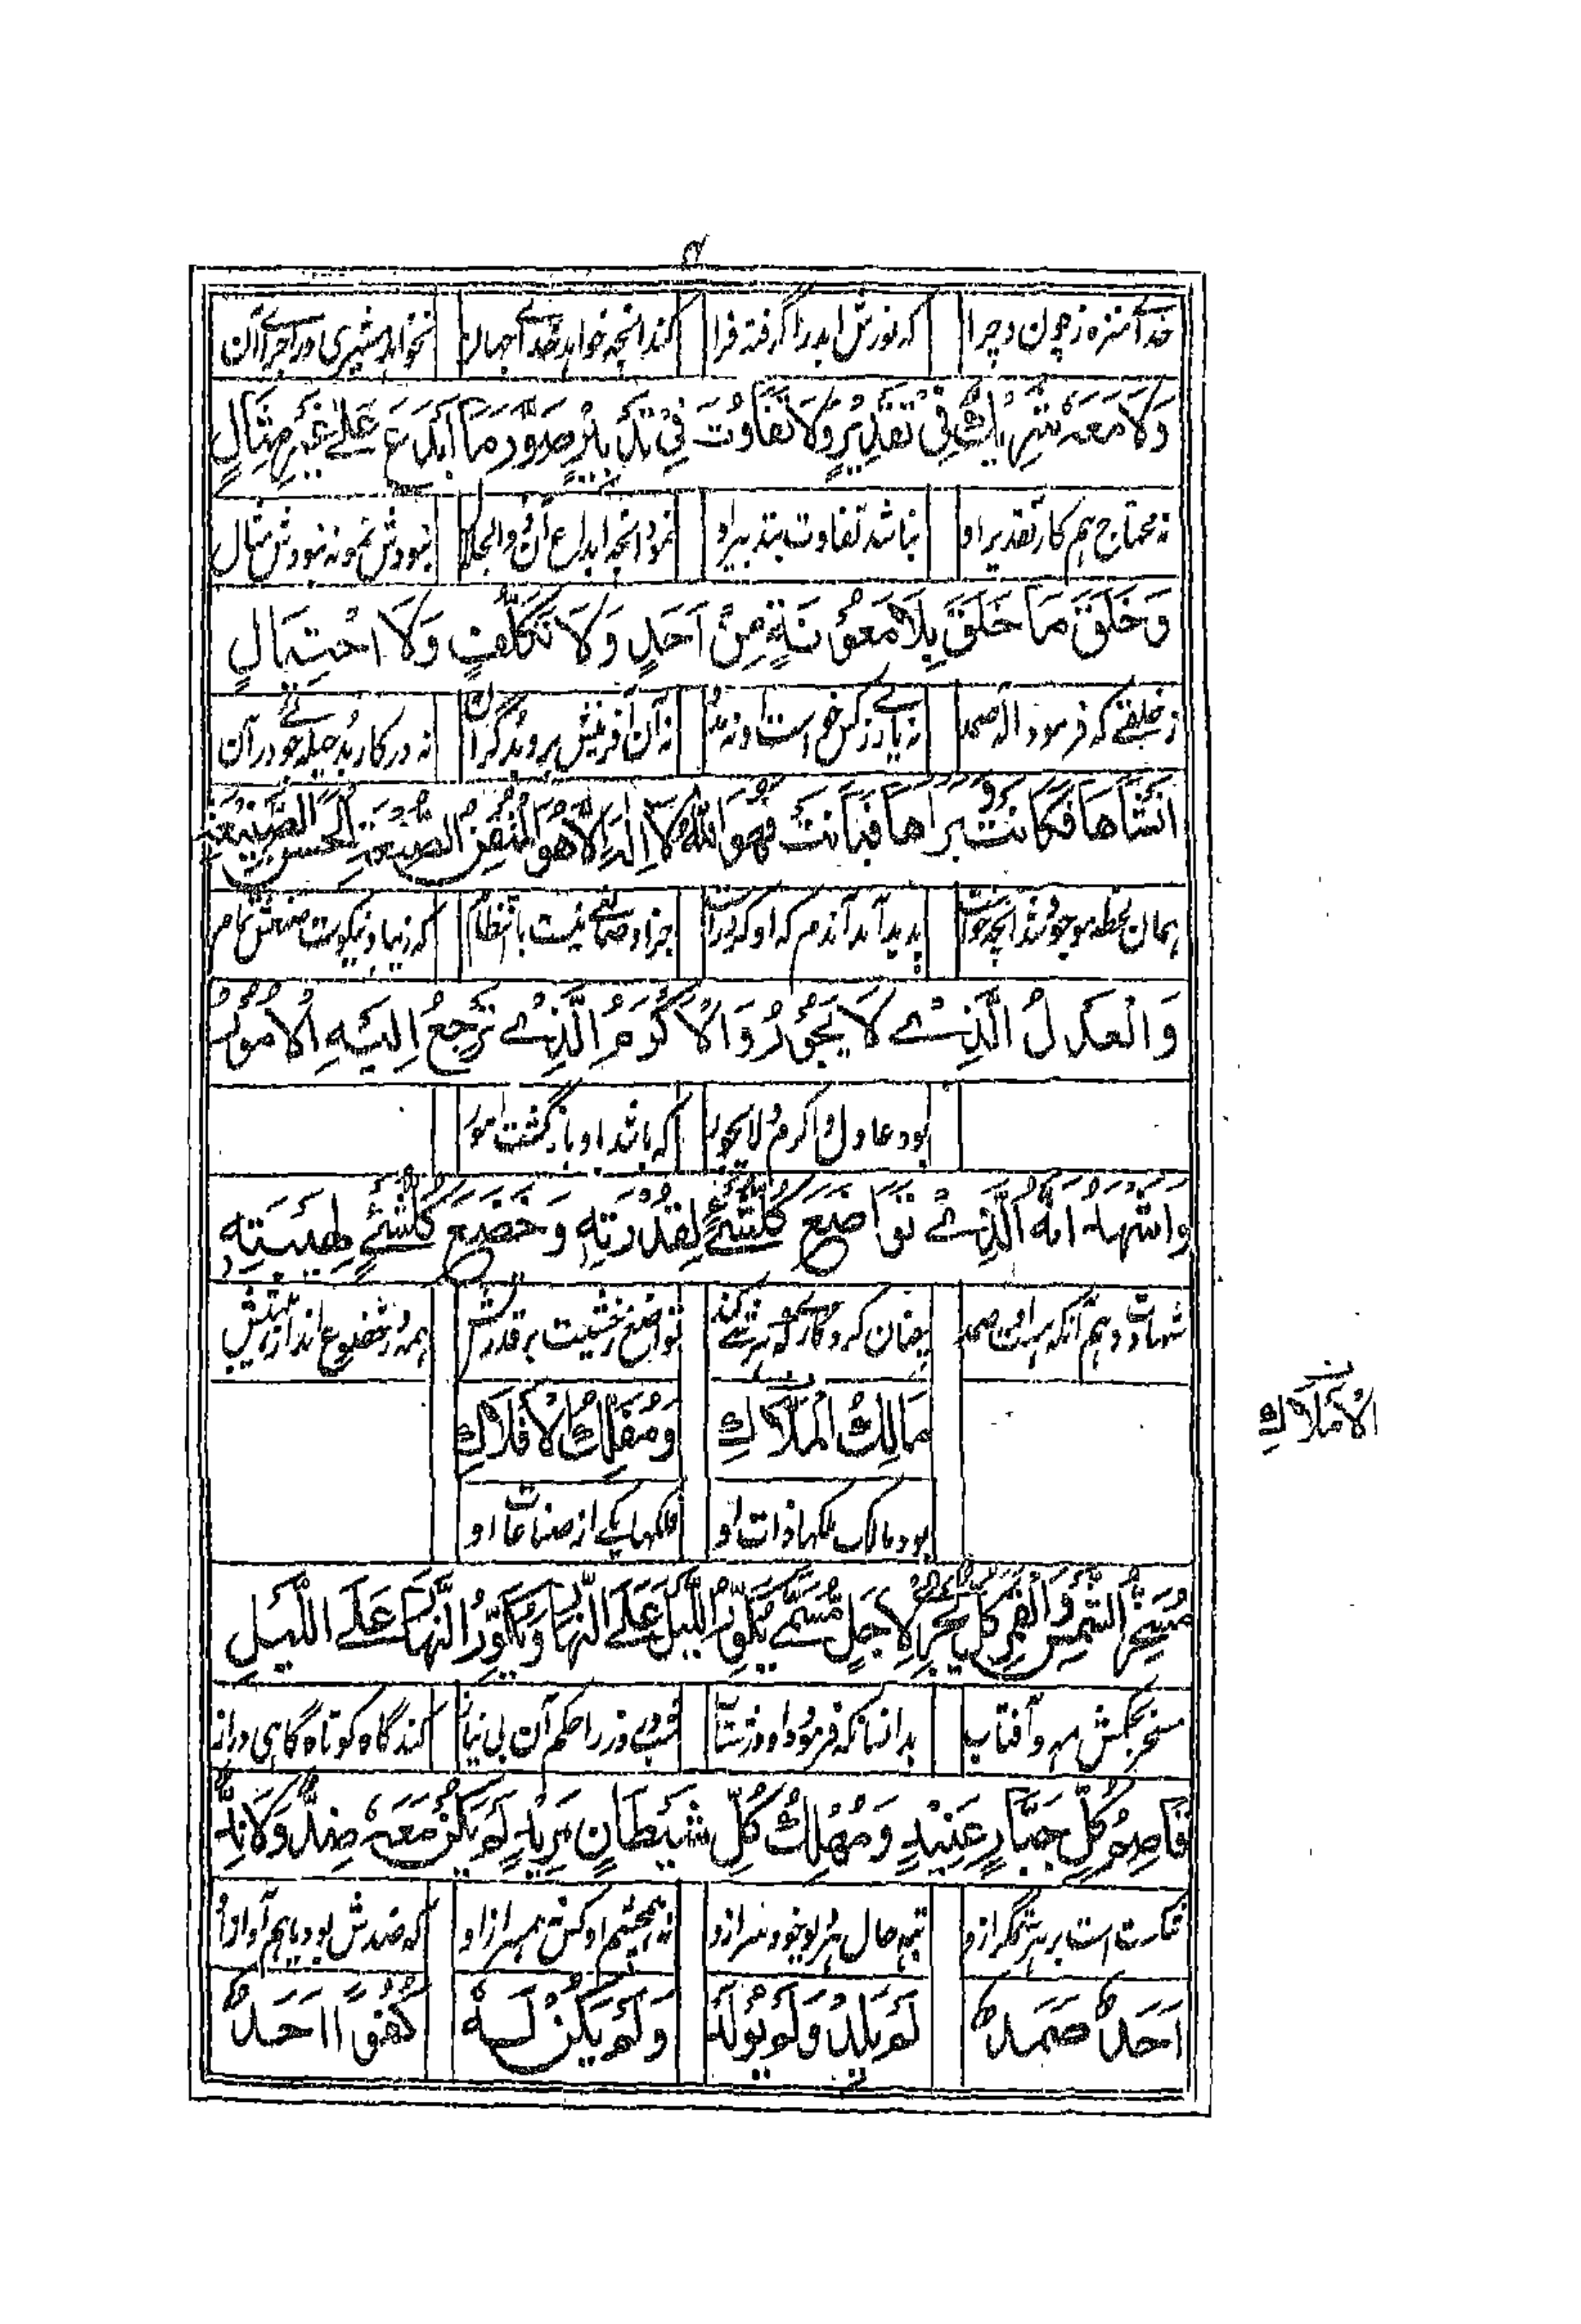 خدائے منزہ ز چون و چرا که نورش ابد را گرفته فرا کند انچه خواهد خدائے جهان نخواهد مشیری در اجرائے آن
وَلَا مَعَهُ شَرِيكٌ فِي تَقْدِيرٍ وَلَا تَفَاوُتَ فِي تَدْبِيرٍ صَوَّرَ مَا أَبْدَعَ عَلٰى غَيْرِ مِثَالٍ
نه محتاج هم کار تقدیر او نباشد تفاوت بتدبیر او نمود انچه ابداع آن ذوالجلال نبودش نمونه نبودش مثال
وَخَلَقَ مَا خَلَقَ بِلَا مَعُوْنَةٍ مِنْ اَحَدٍ وَلَا تَكَلُّفٍ وَلَا احْتِيَالٍ
ز خلقے که فرمود اله صمد نه یارے ز کس خواست و نه مدد نه آن آفرینش برو بد گران نه در کار بد حیله جو در آن
اَنْشَأَهَا فَكَانَتْ وَبَرَأَهَا فَبَانَتْ فَهُوَ اللهُ لَا اِلٰهَ اِلَّا هُوَ الْمُتْقِنُ الصَّنْعَةَ الْحَسَنُ الصَّنِيْعَةِ
همان لحظه موجود شد انچه خواست پدید آمد آندم که او کرد راست جز او صانعے نیست با انتظام که زیبا و نیکوست صنعش تمام
وَالْعَدْلُ الَّذِيْ لَا يَجُوْرُ وَالْاَكْرَمُ الَّذِيْ تَرْجِعُ اِلَيْهِ الْاُمُوْرُ
بود عادل و اکرم و لا یجور که باشد باو بازگشت امور
وَاَشْهَدُ اَنَّهُ الَّذِيْ تَوَاضَعَ كُلُّ شَيْءٍ لِقُدْرَتِهِ وَخَضَعَ كُلُّ شَيْءٍ لِهَيْبَتِهِ
شهادت دهم آنکه هست این صمد تواضع ز شیئیت بر قدرتش همه در خضوع اند از هیبتش
مَالِكُ الْمَلَاكِ وَمُفَلِّكُ الْاَفْلَاكِ
الْاَمْلَاكِ
بود مالک ملکها ذات او فلکها یکے از صناعات او
مُسَخِّرُ الشَّمْسِ وَالْقَمَرِ كُلٌّ يَجْرِيْ لِاَجَلٍ مُسَمًّى يُكَوِّرُ اللَّيْلَ عَلَى النَّهَارِ وَيُكَوِّرُ النَّهَارَ عَلَى اللَّيْلِ
مسخر بحکمش مه و آفتاب بدانسانکه فرمود او در شتاب شب و روز را حکم آن بی نیاز کند گاه کوتاه گاهی دراز
قَاصِمُ كُلِّ جَبَّارٍ عَنِيْدٍ وَمُهْلِكُ كُلِّ شَيْطَانٍ مَرِيْدٍ لَمْ يَكُنْ مَعَهُ ضِدٌّ وَلَا نِدٌّ
شکست است بر هر ستمگر ازو تبه حال هر دیو خودسر ازو نه همچشم او کس نه همسر ازو که ضدش بود یا هم آواز او
اَحَدٌ صَمَدٌ لَمْ يَلِدْ وَلَمْ يُوْلَدْ وَلَمْ يَكُنْ لَهُ كُفُوًا اَحَدٌ